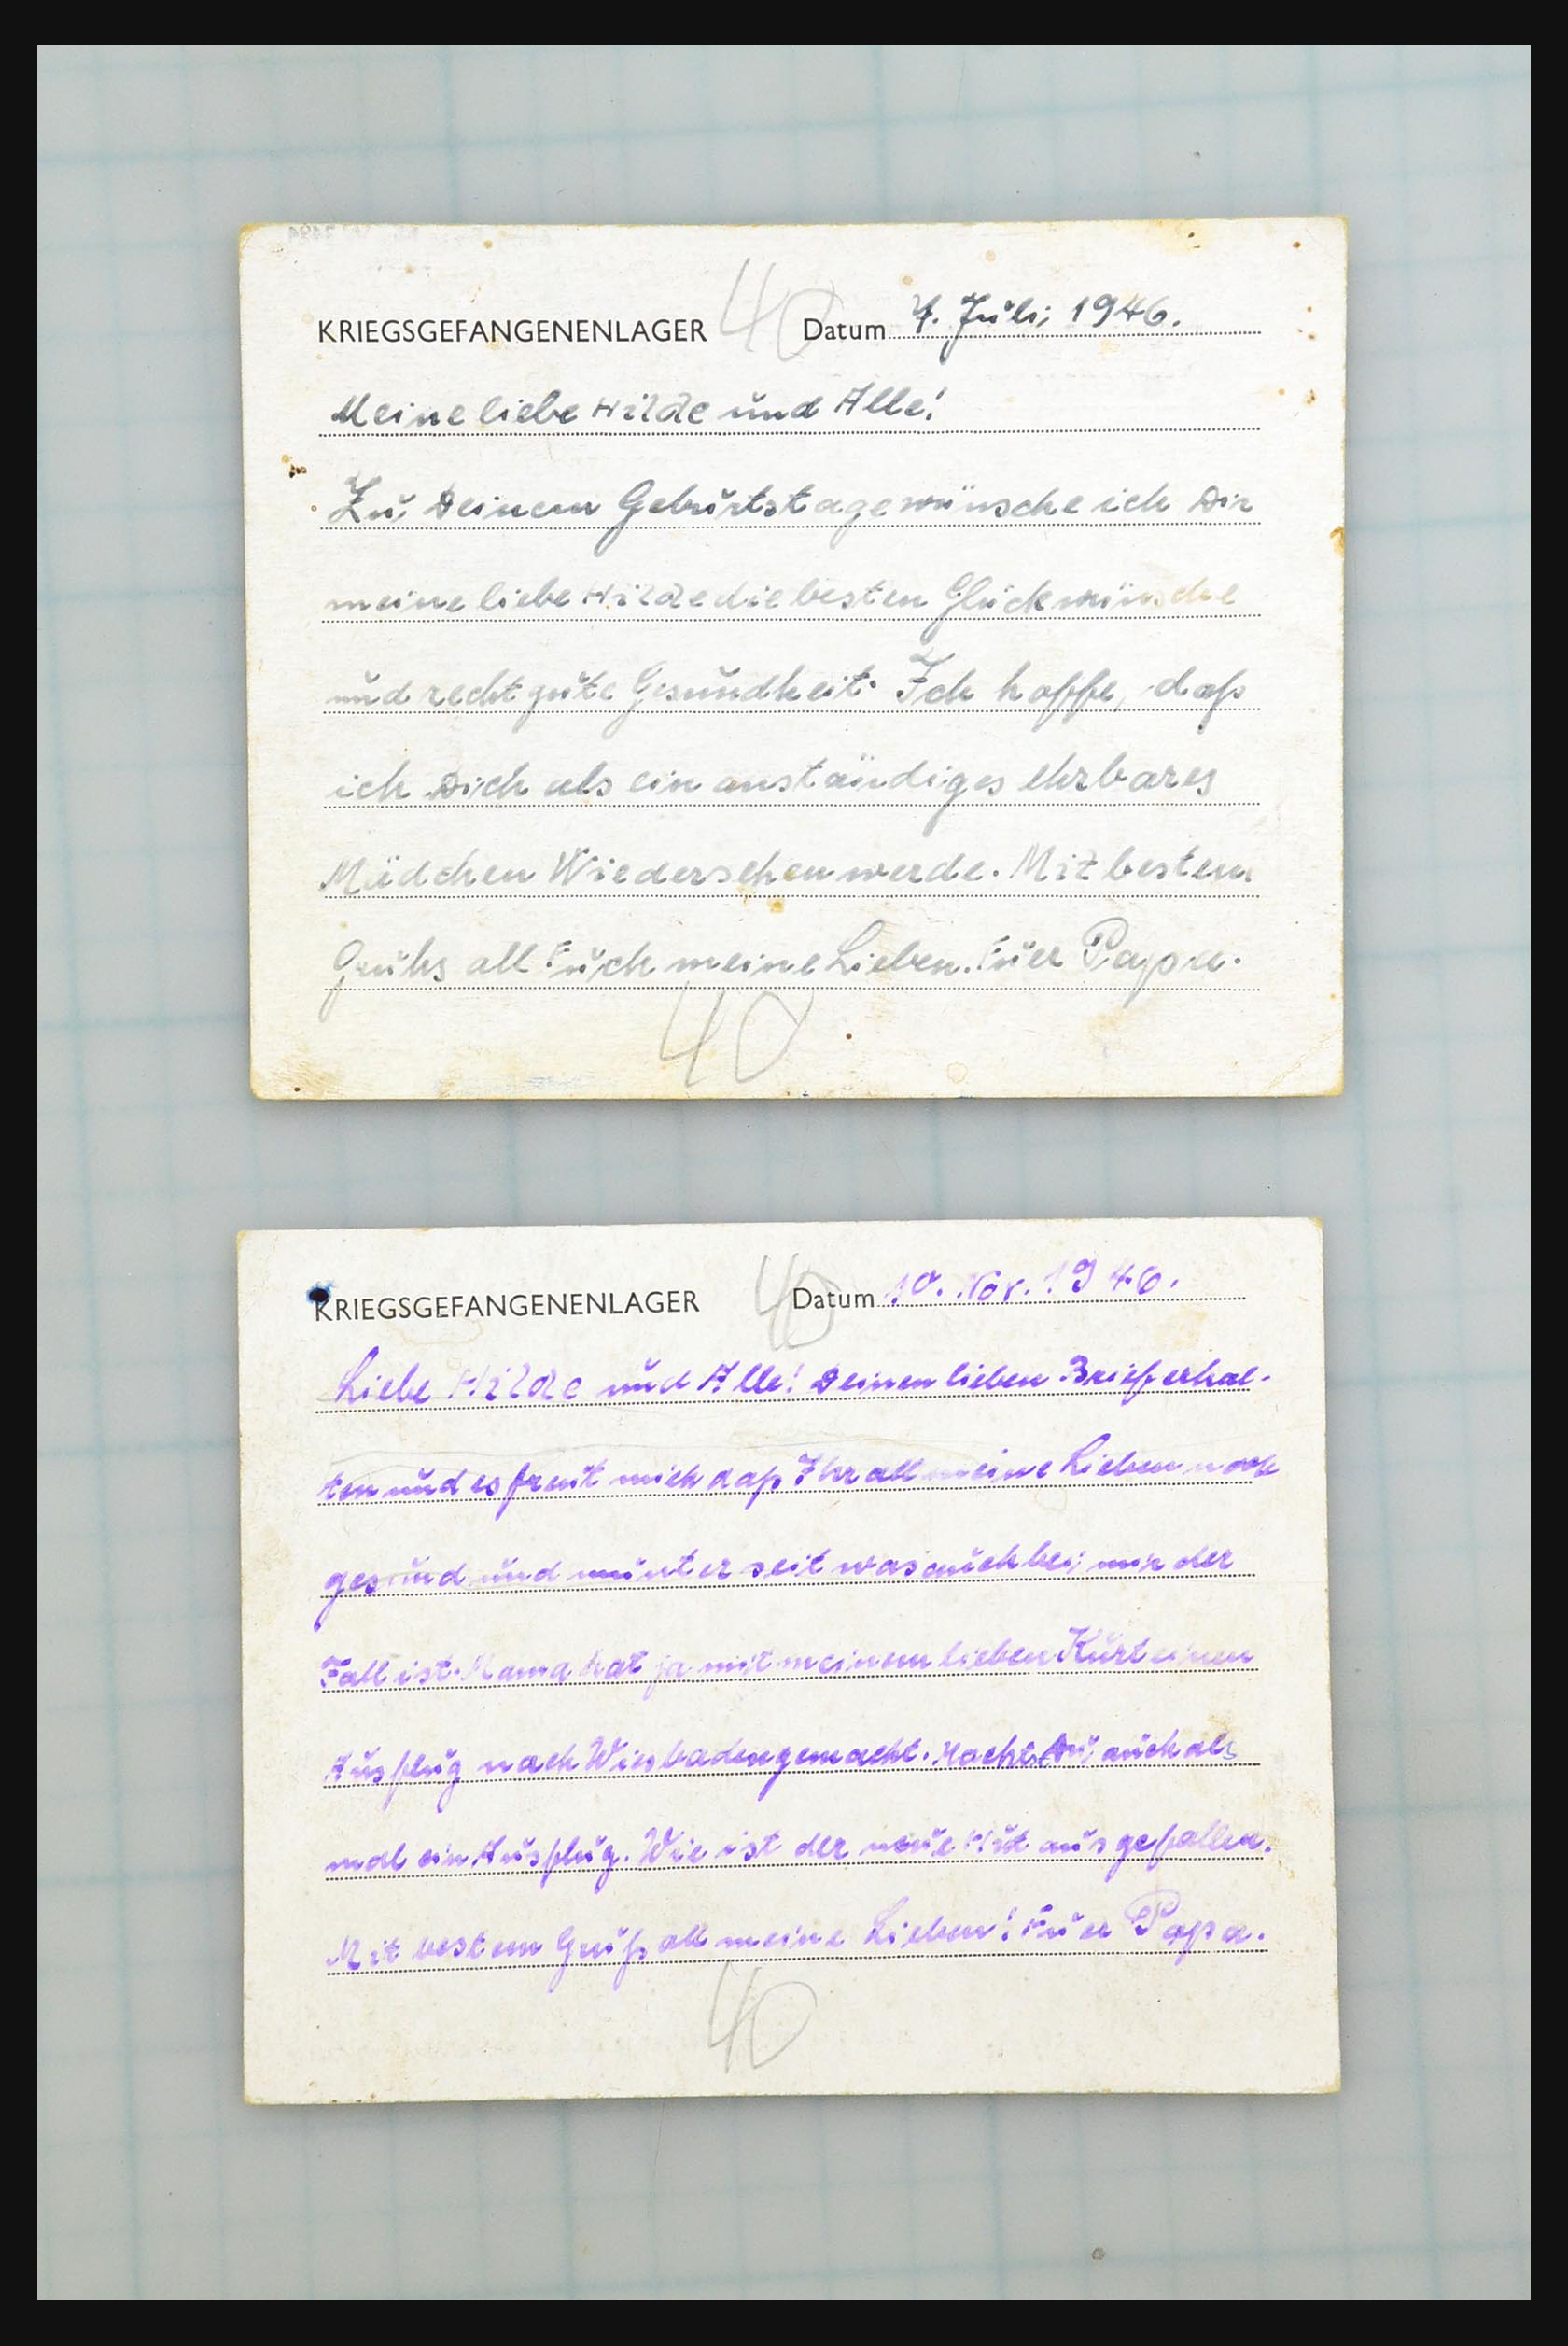 40
KRIEGSGEFANGENENLAGER Datum 7. Juli 1946.
Meine liebe Hilde und Alle!
Zu Deinem Geburtstage wünsche ich Dir
meine liebe Hilde die besten Glückwünsche
und recht gute Gesundheit. Ich hoffe, daß
ich Dich als ein anständiges ehrbares
Mädchen Wiedersehen werde. Mit bestem
Gruhs all Euch meine Lieben. Euer Papa.
40
40
KRIEGSGEFANGENENLAGER Datum 10. Nov. 1946.
Liebe Hilde und Alle! Deinen lieben Brief erhal-
ten und es freut mich daß Ihr all meine Lieben noch
gesund und munter seit was auch bei mir der
Fall ist. Mama hat ja mit meinem lieben Kurt einen
Ausflug nach Wiesbaden gemacht. Machst Du auch als
mal ein Ausflug. Wie ist der neue Hut ausgefallen.
Mit bestem Gruß all meine Lieben! Euer Papa.
40